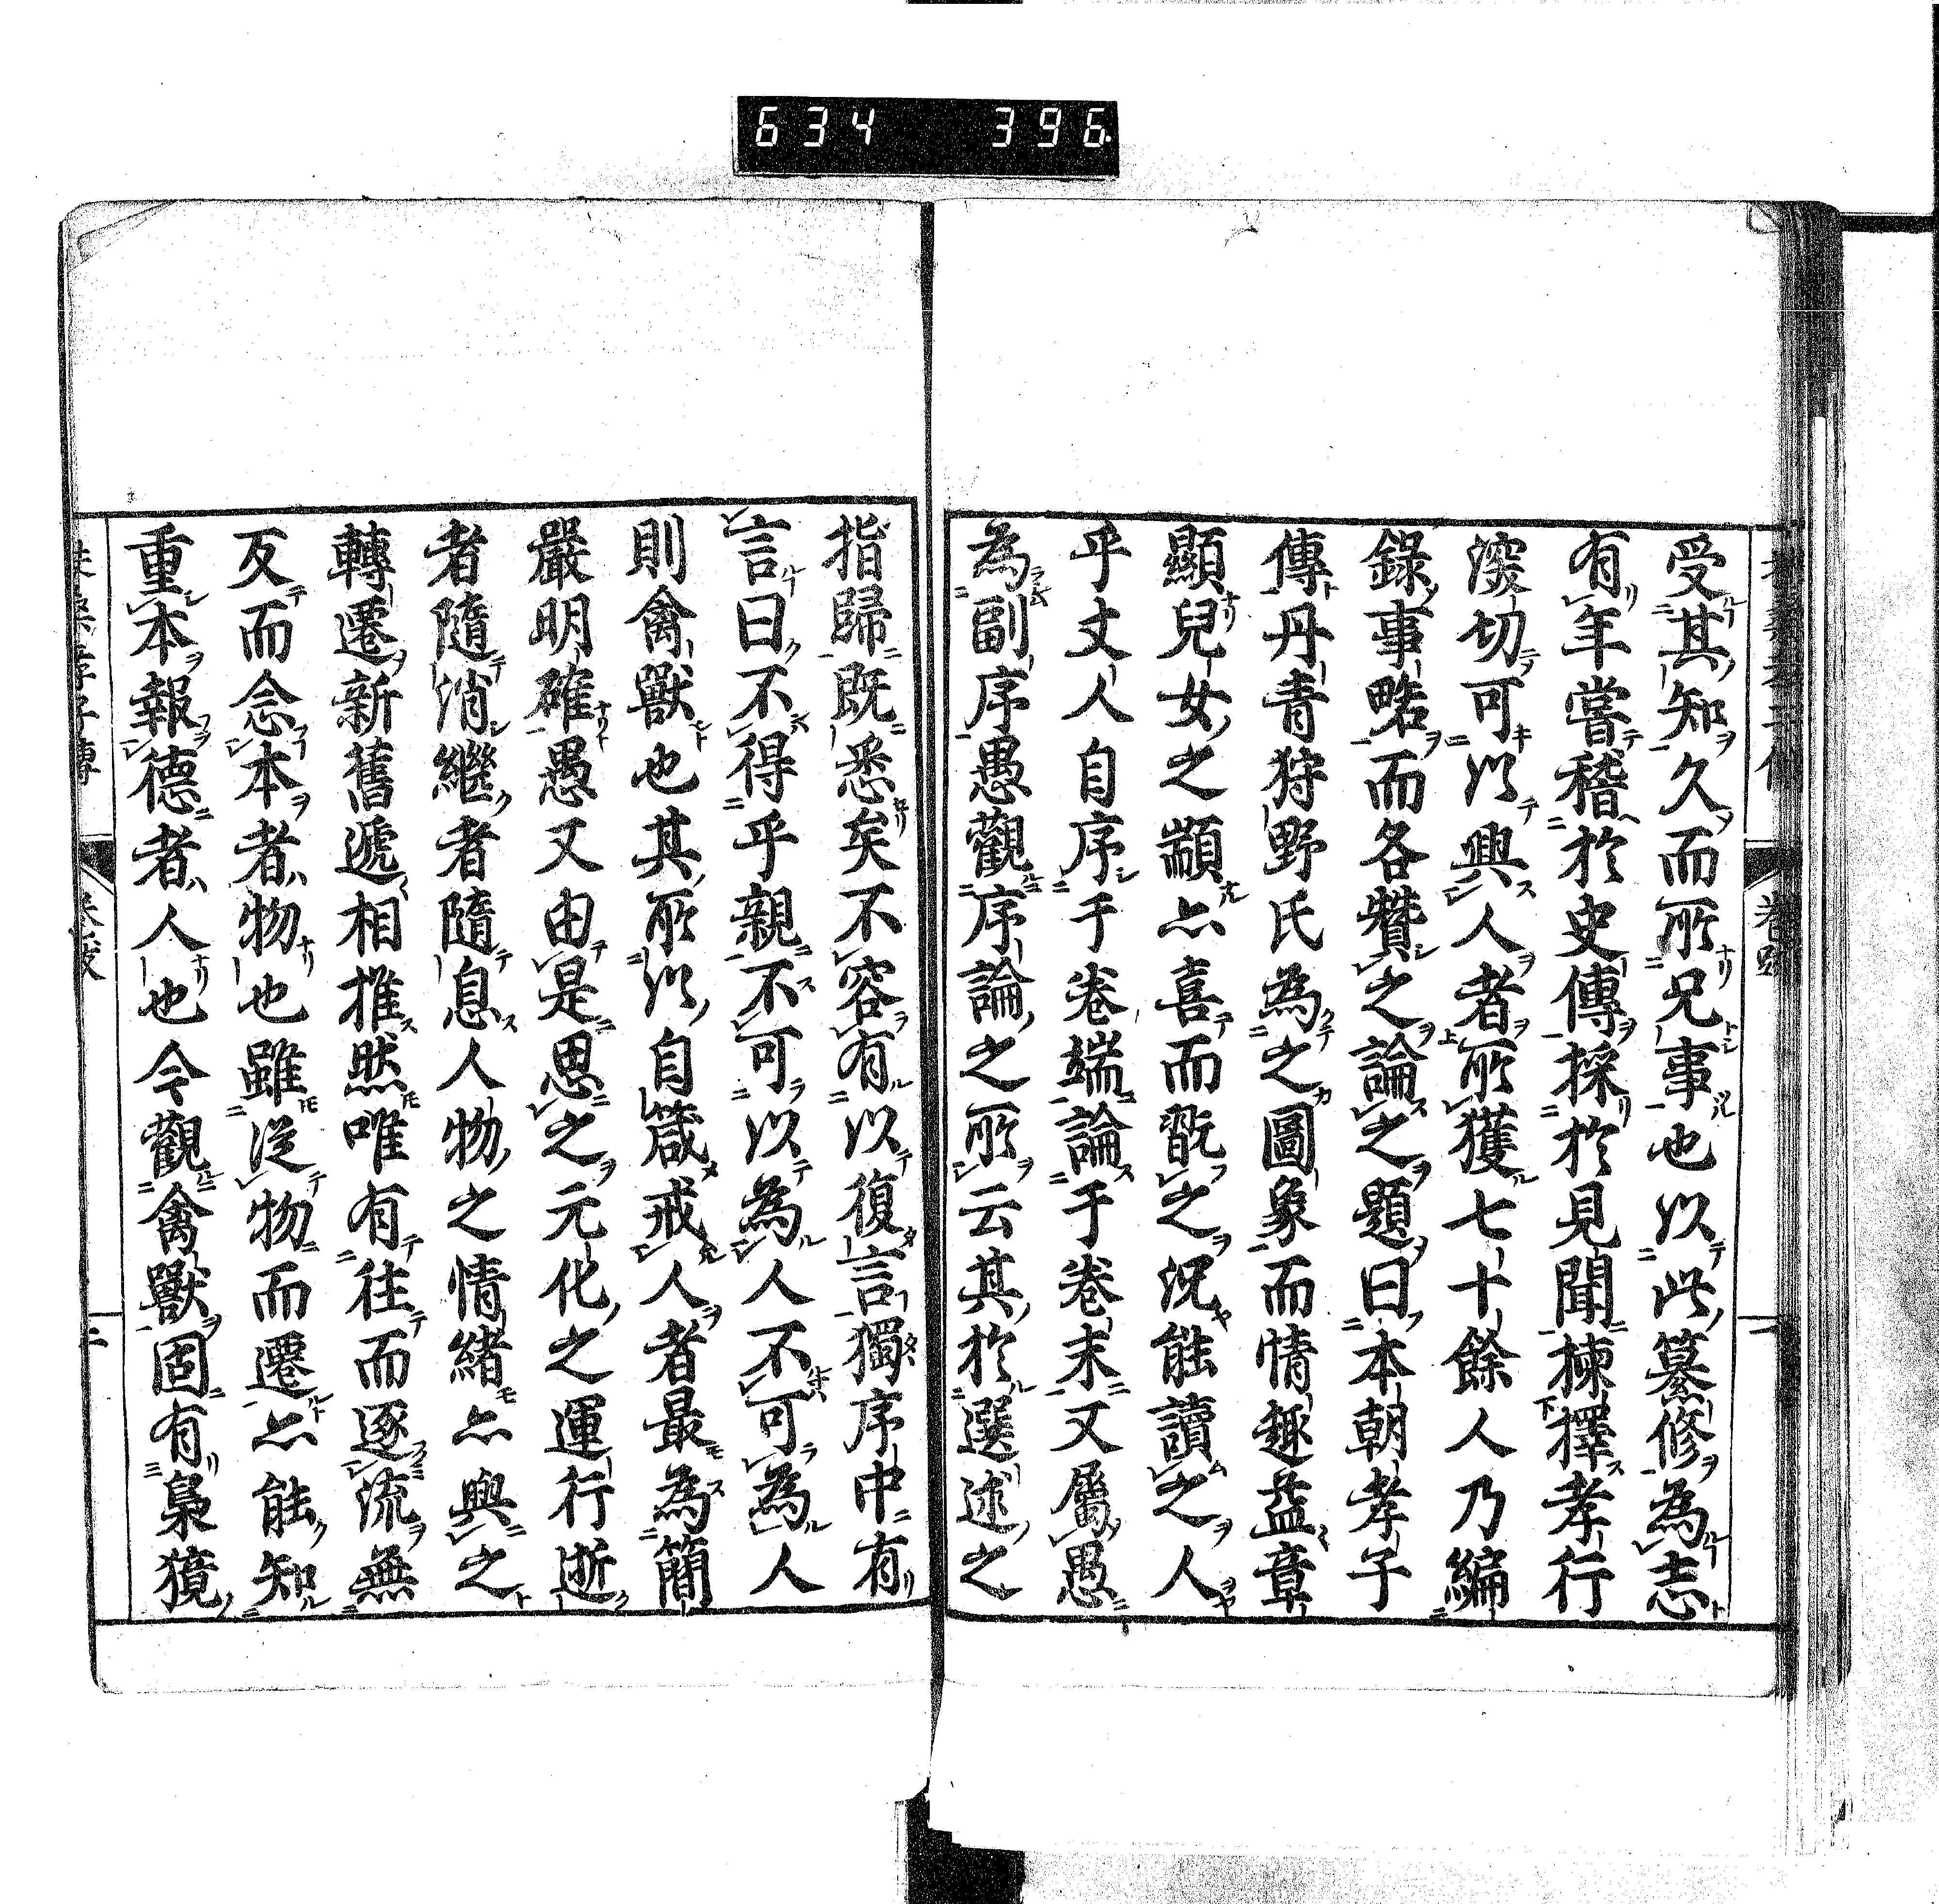 634 396
受其知久而所兄事也以此纂修為志
有年嘗稽於史傳採於見聞揀擇孝行
深切可以興人者所獲七十餘人乃編
錄事略而各贊之論之題曰本朝孝子
傳丹青狩野氏為之圖象而情趣益章
顯兒女之顓亦喜而翫之況能讀之人
乎丈人自序于卷端論于卷末又屬愚
為副序愚觀序論之所云其於選述之
指歸既悉矣不容有以復言獨序中有
言曰不得乎親不可以為人不可為人
則禽獸也其所以自箴戒人者最為簡
嚴明確愚又由是思之元化之運行逝
者隨消繼者隨息人物之情緒亦與之
轉遷新舊遞相推然唯有往而逐流無
反而念本者物也雖從物而遷亦能知
重本報德者人也今觀禽獸固有梟獍
二